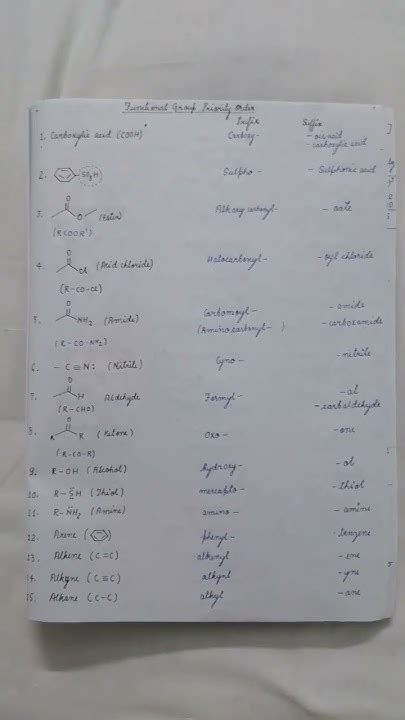 Functional Group Priority Order
Prefix Suffix
1. Carboxylic acid (COOH) Carboxy- -oic acid
-carboxylic acid
2. SO3H Sulpho- -Sulphonic acid
3. O
O (Ester) Alkoxy carbonyl- -oate
(RCOOR')
4. O
Cl (Acid chloride) Halocarbonyl- -oyl chloride
(R-CO-Cl)
5. O
NH2 (Amide) Carbamoyl- -amide
(Amino carbonyl- ) -carboxamide
(R-CO-NH2)
6. -C≡N: (Nitrile) Cyno- -nitrile
7. O
H Aldehyde Formyl- -al
(R-CHO) -carbaldehyde
8. O
R R (Ketone) Oxo- -one
(R-CO-R)
9. R-OH (Alcohol) hydroxy- -ol
10. R-SH (Thiol) mercapto- -thiol
11. R-NH2 (Amine) amino- -amine
12. Arene ( ) phenyl- -benzene
13. Alkene (C=C) alkenyl -ene
14. Alkyne (C≡C) alkynl -yne
15. Alkane (C-C) alkyl -ane